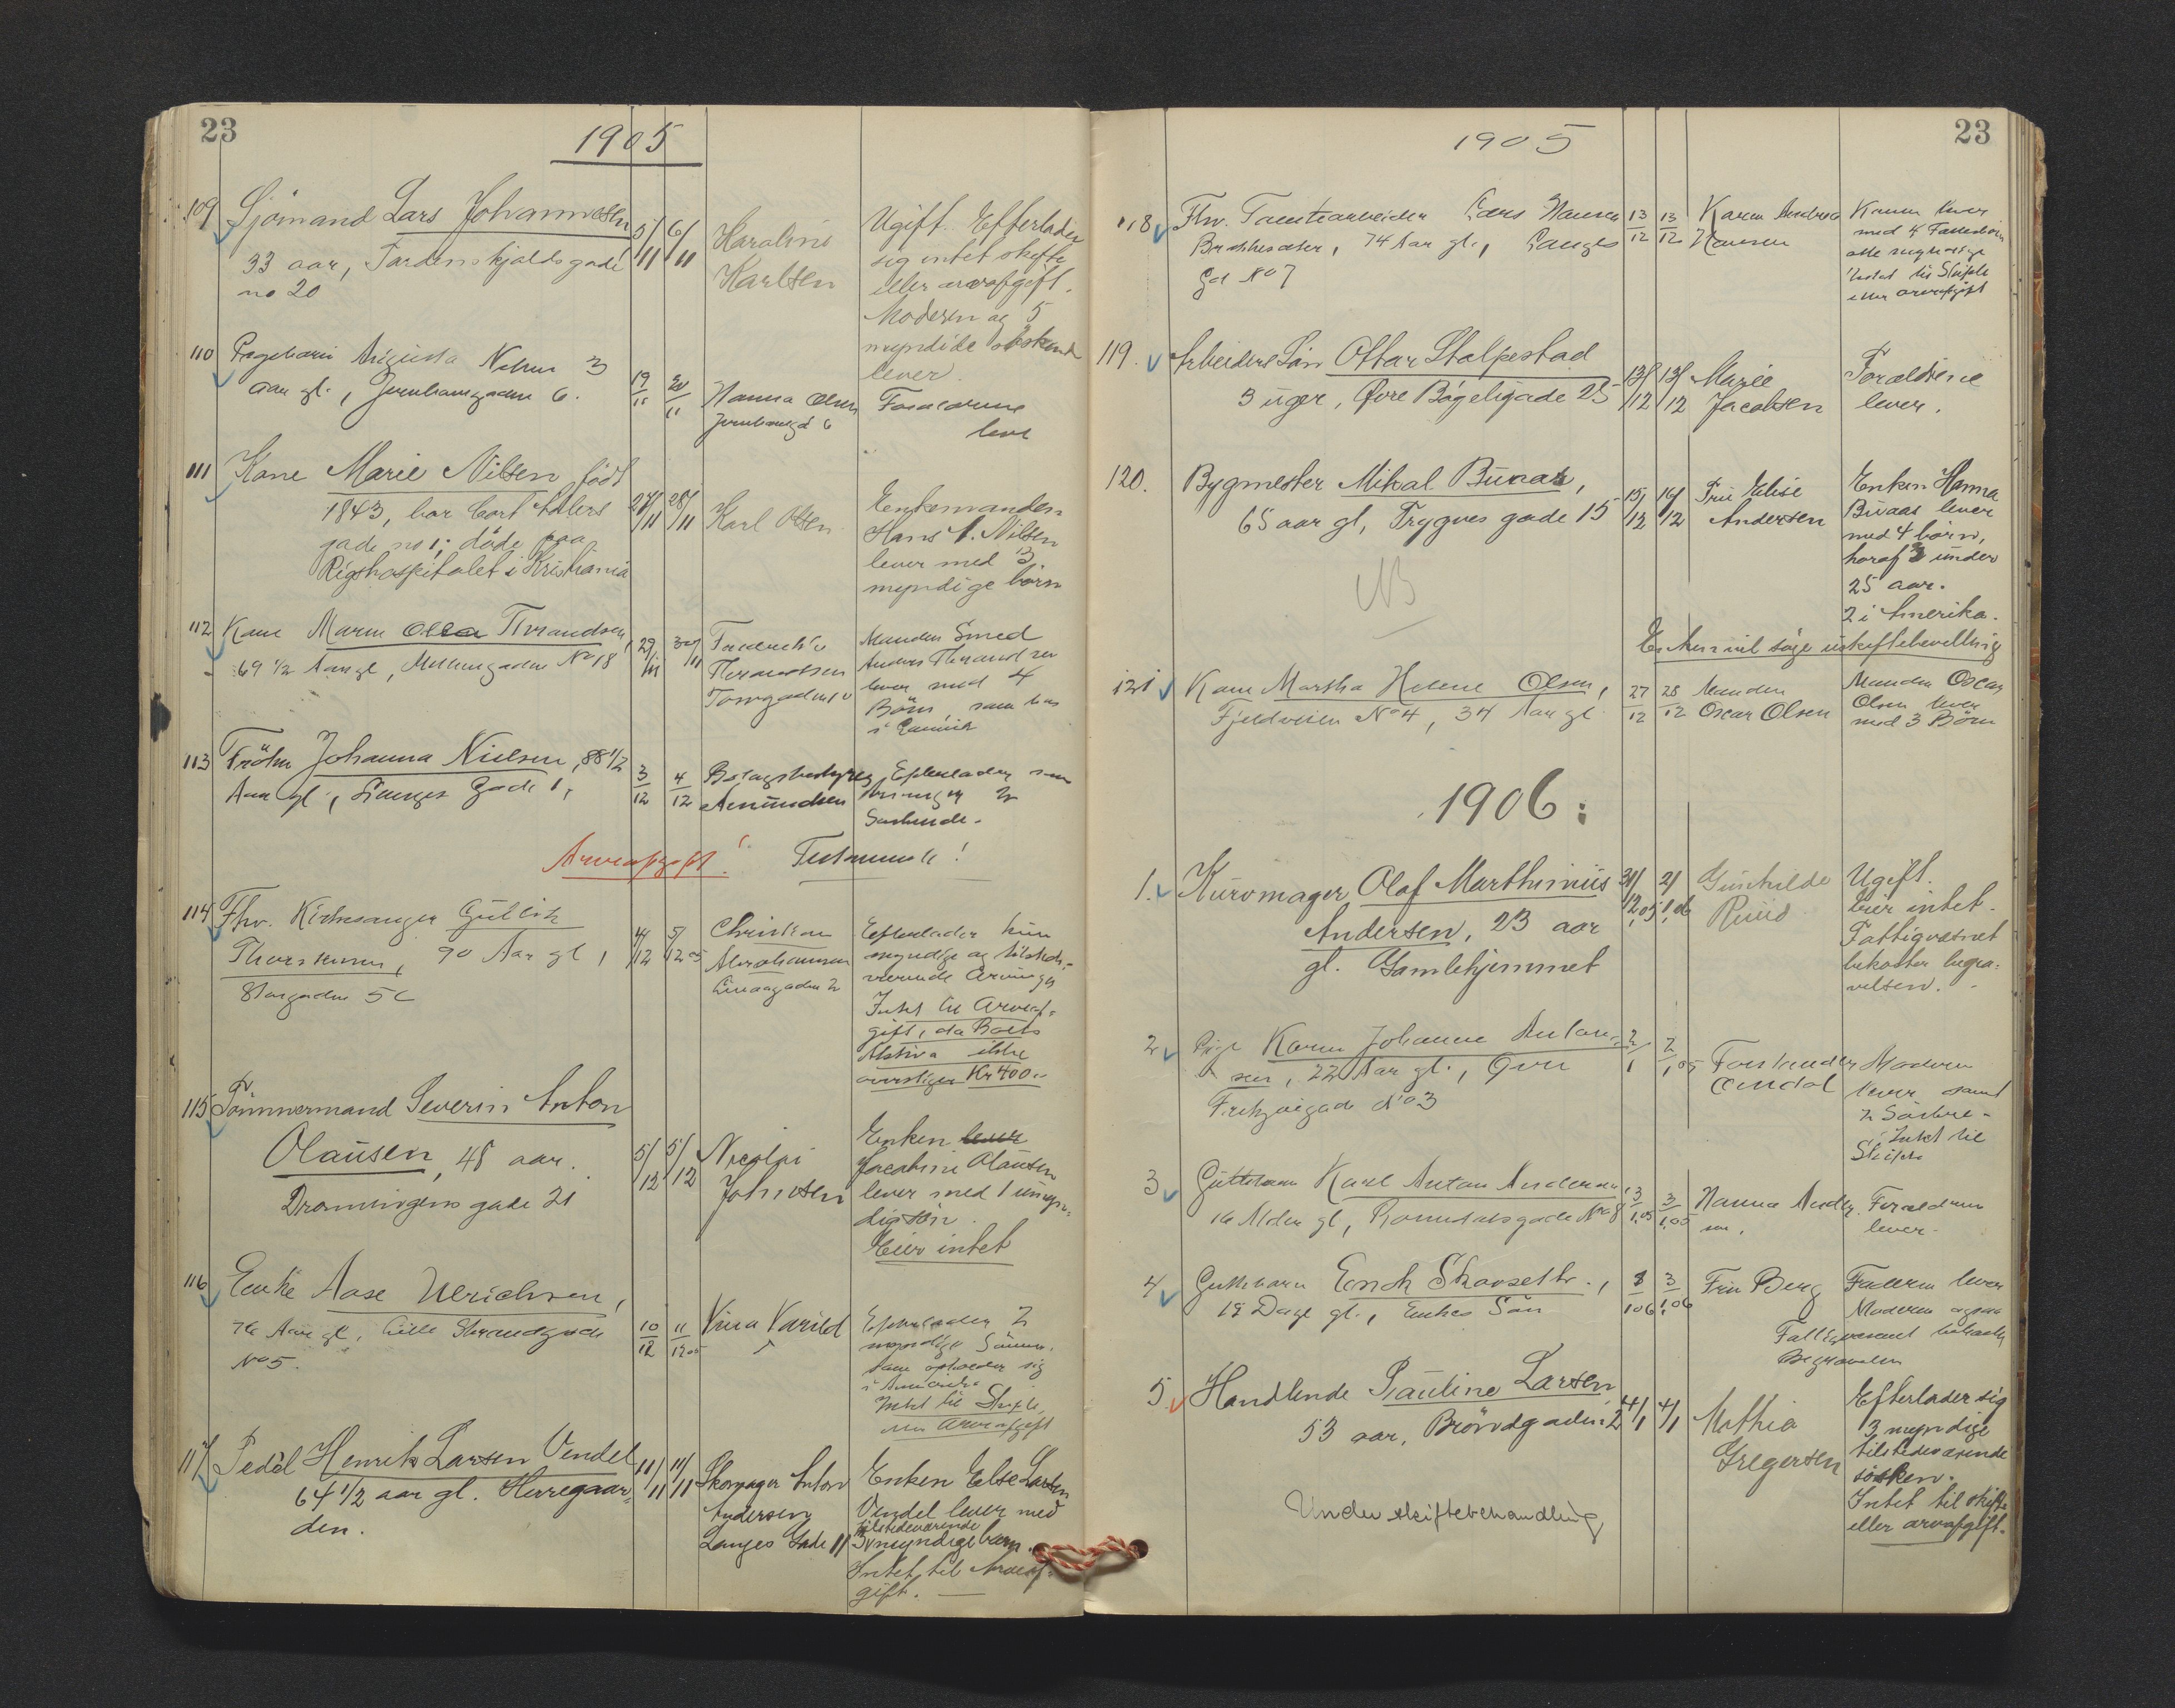 23
1905
109 Sjömand Lars Johannesen
33 aar, Tordenskjoldsgade
no 20
5/11 6/11
Karoline
Karlsen
Ugift. Efterlader
sig intet skifte
eller arveafgift.
Moderen og 5
myndide söskende
lever.
110 Pigebarn Augusta Nilsen 3
Aar gl., Jernbanegaden 6.
19/11 20/11
Hanna Olsen
Jernbanegd 6
Forældrene
lever
111 Kone Marie Nilsen född
1843, bor Cort Adlers
gade no 1; döde paa
Rigshospitalet i Kristiania
27/11 28/11
Karl Olsen
Enkemanden
Hans A. Nilsen
lever med 3
myndige börn
112 Kone Maren Olea Thrandsen,
69 1/2 Aar gl, Møllergaden No 18
29/11 30/11
Frederikke
Thrandsen
Manden Smed
Anders Thrandsen
lever med 4
Börn, som bor
113 Fröken Johanna Nielsen, 88 1/2
Aar gl., Langes Gade 1,
3/12 4/12
Bolagsbestyrer
Amundsen
Efterlader som
Arvinger 2
Søskende.
Arveafgift! Testamente!
114 Fhv. Kirkesanger Gullik
Thorsensen, 90 Aar gl,
Storgaden 5c
4/12 5/12 05
Christian
Abrahamsen
Efterlader kun
myndige og tilstede-
værende Arvinger
Intet til Arveaf-
gift, da Boets
Aktiva ikke
overstiger Kr 400.-
115 Tömmermand Severin Anton
Olausen, 48 aar.
Dronningens gade 21
5/12 5/12
Nicolai
Johnsen
Enken lever
Jacobine Olausen
lever med 1 umyn-
dig sön.
Eier intet
116 Enke Aase Ulrichsen,
76 Aar gl, Lille Strandgade
No 5.
10/12 11/12 05
Efterlader 2
myndige Sönner,
som opholder sig
i Amerika
Intet til Skifte
eller Arveafgift
117 Pedel Henrik Larsen Vendel
64 1/2 aar gl. Herregaar-
den.
11/11 11/11
Skomager Anton
Andersen
Langes Gade 11
Enken Else Larsen
Vendel lever med
tilstedeværende
3 myndige barn.
Intet til Arveaf-
gift.
23
1905
118 Fhv. Tomtearbeider Lars Hansen
Brekkesæter, 74 Aar gl., Langes
Gd No 7
13/12 13/12
Karen Andrea
Hansen
Konen lever
med 4 Fællesbörn
alle myndige
Intet til Skifte
eller arveafgift
119. Arbeiders Sön Ottar Stolpestad
3 uger, Övre Bögeligade 25
13/12 13/12
Marie
Jacobsen
Forældrene
lever.
120. Bygmester Mikal Buaas,
65 aar gl, Trygves gade 15
15/12 16/12
Fru Elise
Andersen
Enken Hanna
Buaas lever
med 4 börn,
horaf 3 under
25 aar.
2 i Amerika.
NB
Enken vil söge uskiftebevilling
121 Kone Martha Helene Olsen,
Fjeldveien No 4, 34 Aar gl
27/12 28/12
Manden
Oscar Olsen
Manden Oscar
Olsen lever
med 3 Börn
1906:
1. Kurvmager Olaf Marthinius
Andersen, 23 aar
gl. Gamlehjemmet
31/12,05 2/1,06
Gunhilde
Ruud
Ugift.
Eier intet.
Fattigvæsnet
bekoster begra-
velsen.
2 Pige Karen Johanne Anton-
sen, 22 Aar gl., Övre
No 3
2/1 2/1,05
Forstander
Omdal
Moderen
lever samt
2 Søskende.
Intet til
Skifte
3 Guttebarn Karl Anton Andersen,
16 Mdr gl, Romsdalsgade No 8
3/1,05 3/1,05
Hanna Ander-
sen.
Forældrene
lever.
4 Guttebarn Erick Skovseth.,
18 Dage gl., Enkes Sön
3/1 06 3/1,06
Fru Berg
Faderen lever
Moderen ogsaa
Fattigvæsenet bekoster
Begravelsen
5 Handlende Pauline Larsen
53 aar, Bröndgaden 2
4/1 4/1
Mathia
Gregersen
Efterlader sig
3 myndige
tilstedeværende
sösken.
Intet til skifte
eller arvafgift.
Under skiftebehandling